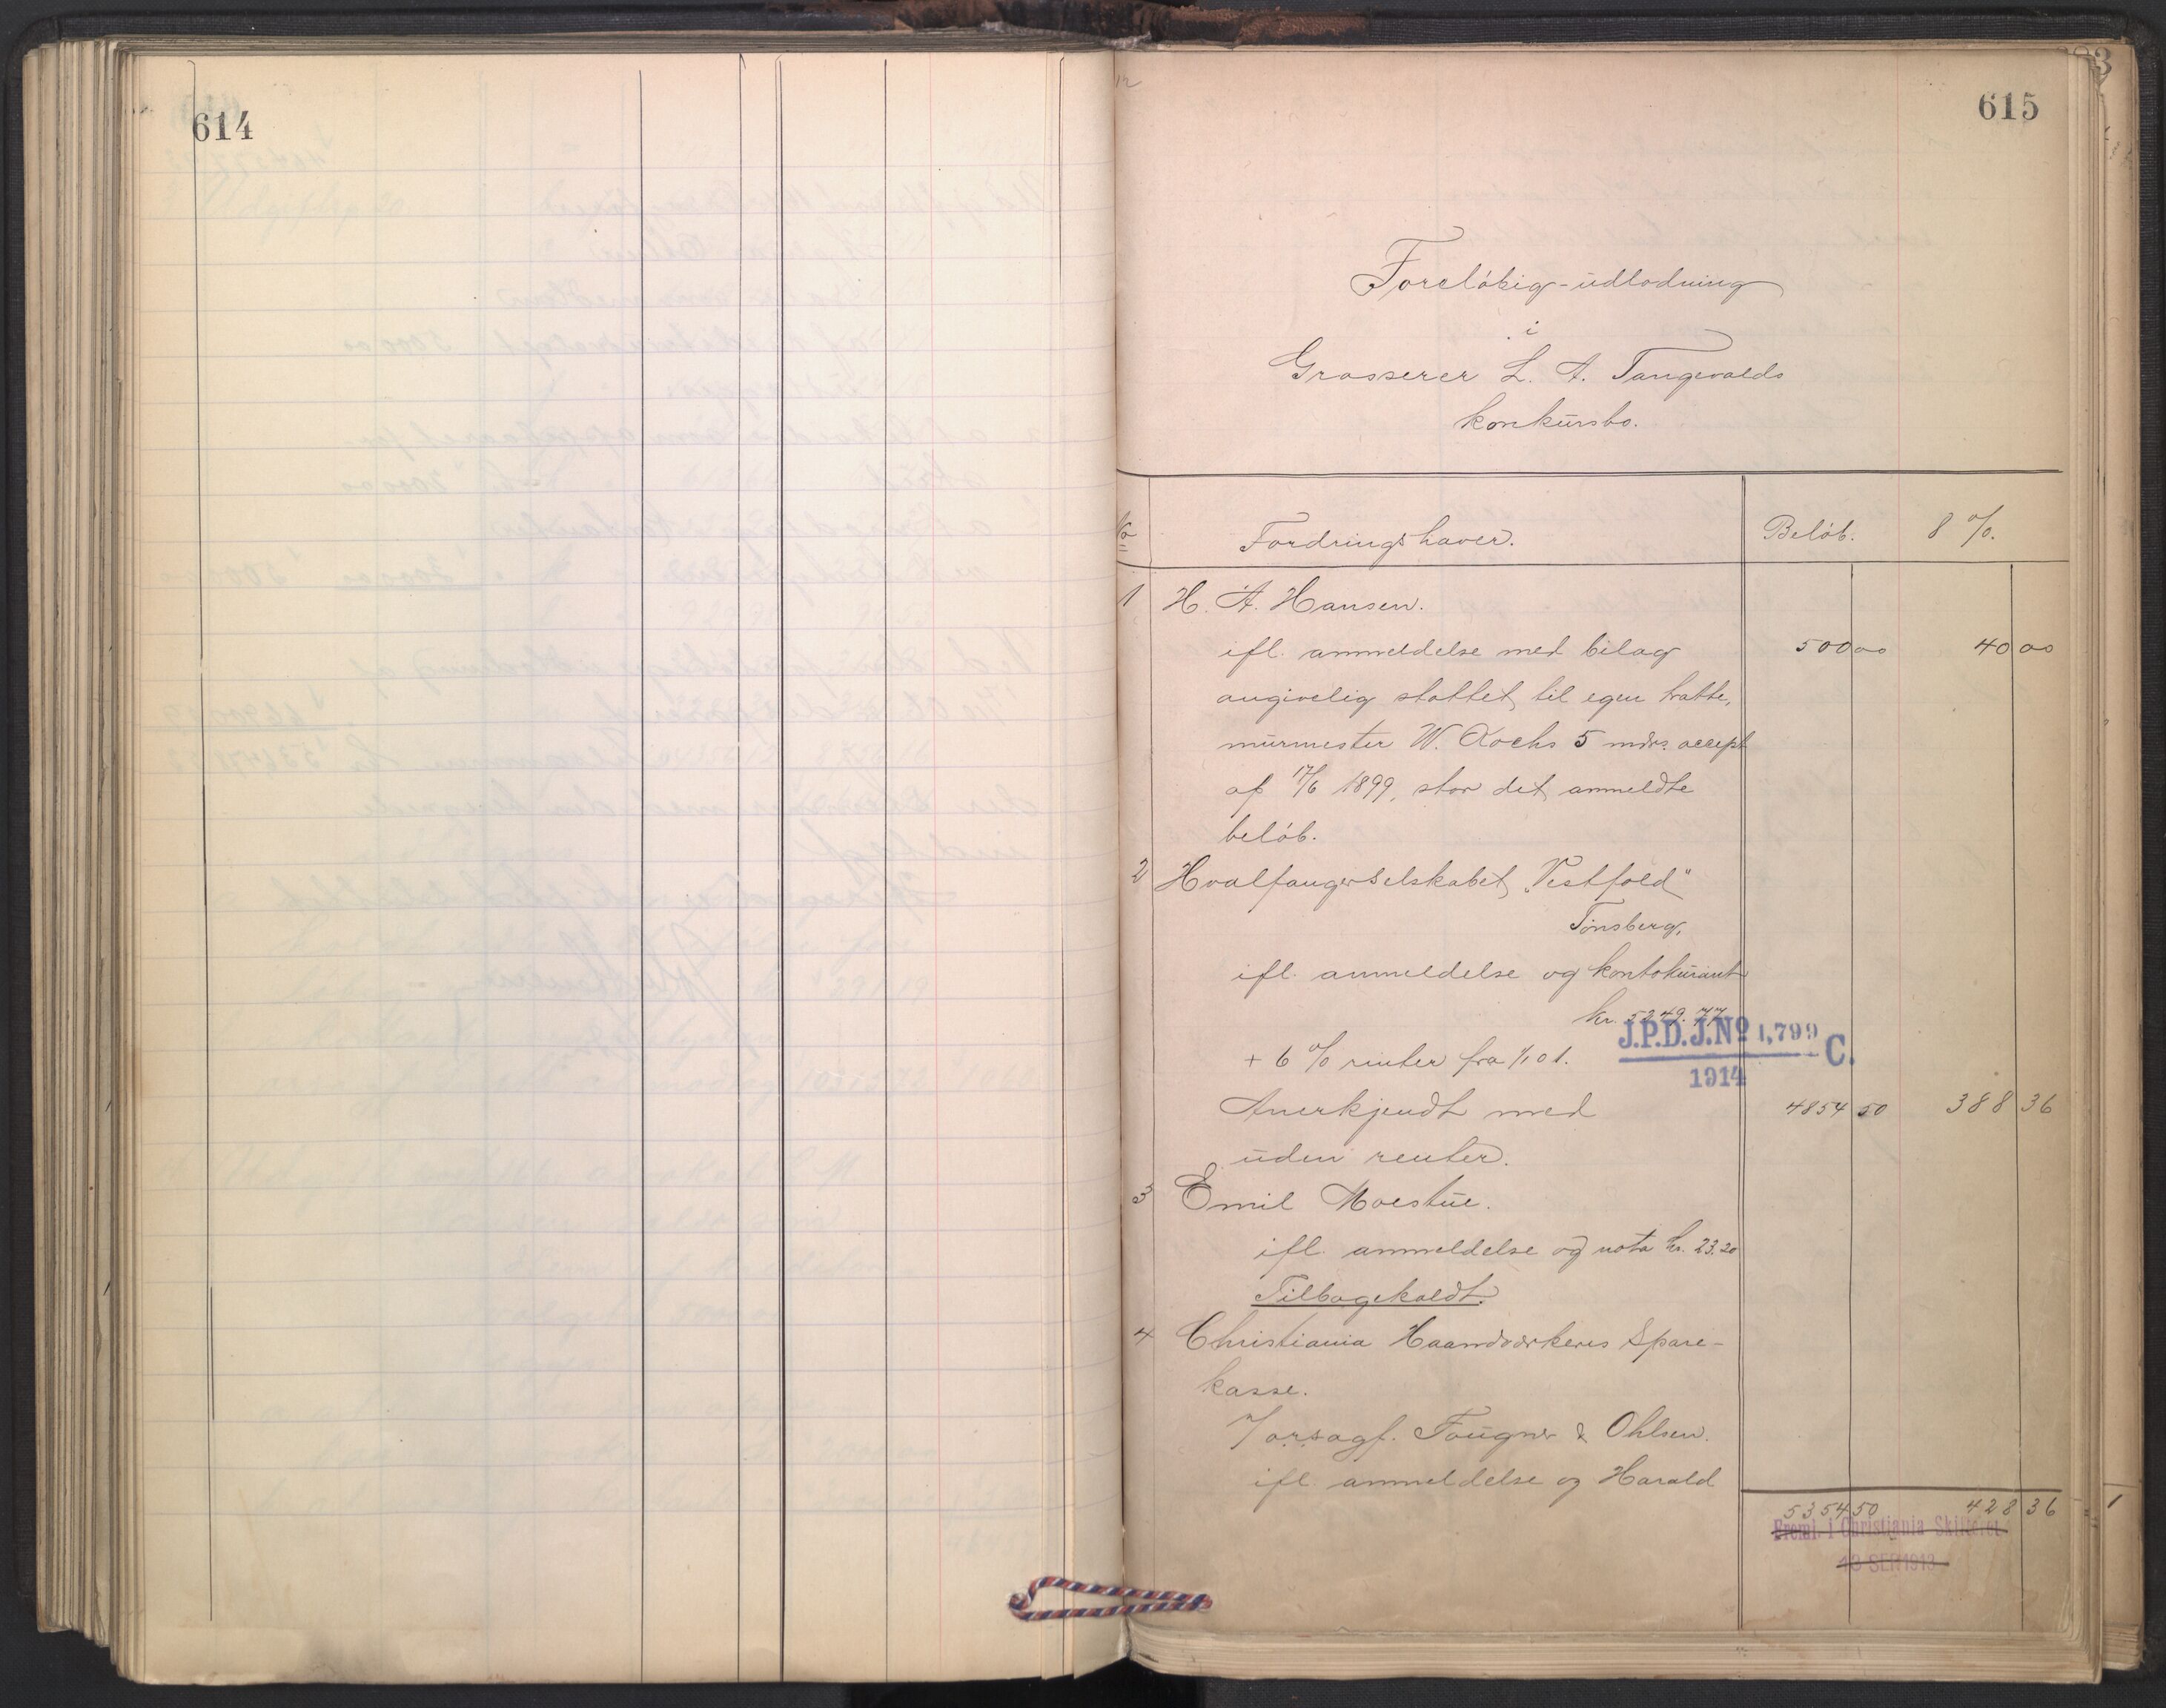 614
615
Foreløbig-udlodning
i
Grosserer L. A. Tangevalds
konkursbo.
No Fordringshaver. Beløb. 8 %.
1 H. A. Hansen.
ifl. anmeldelse med bilag 500 00 40 00
angivelig støttet til egen tratte,
murmester W. Kochs 5 mdrs. accept
af 17/6 1899, stor det anmeldte
beløb.
2 Hvalfangerselskabet „Vestfold"
Tønsberg,
ifl. anmeldelse og kontokurant
kr. 5249.77
J.P.D.J.No 1,799 C.
1914
+ 6 % renter fra 1/1 01.
Anerkjendt med 4854 50 388 36
uden renter.
3 Emil Moestue.
ifl. anmeldelse og nota kr. 23.20
Tilbagekaldt.
4 Christiania Haandværkeres Spare-
kasse.
v/ orsagf. Fougner & Ohlsen.
ifl. anmeldelse og Harald
5354 50 428 36
Freml. i Christiania Skifteret
13 SEP 1913